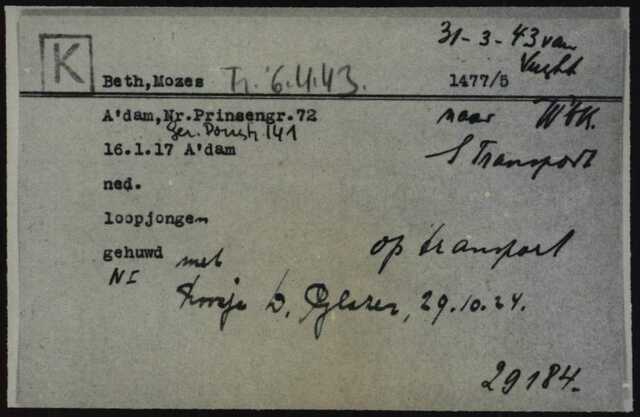 31-3-43 van
Vught
K
Beth,Mozes Tr. 6.4.43. 1477/5
A'dam,Nr.Prinsengr.72 naar Wbk.
141
16.1.17 A'dam S Transport
ned.
loopjongen
gehuwd met op transport
NI
D. Glazer, 29.10.24.
29184.